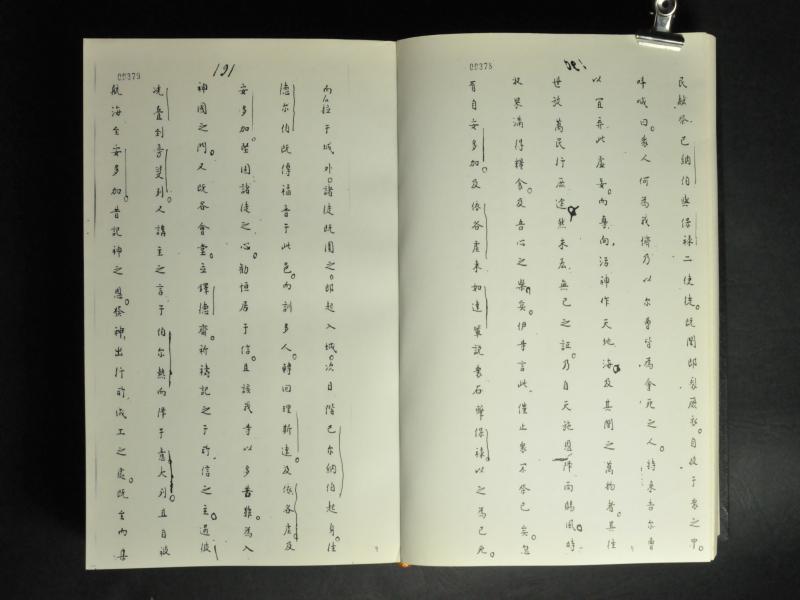 00378
190
民敏祭。巴納伯與保祿二使徒。既聞即裂厥衣。自投于眾之中。
呼喊曰。眾人何為我儕乃以尔曹皆為會死之人。特来告尔曹
以宜弃此虛妄。而專向活神作天地海及其間之萬物者。其往
世設萬民行厥途。然未無己之証。乃自天施恩降雨賜風時
收果滿得糧食及吾心之樂矣。伊等言此僅止眾不祭己矣。忽
有自安多加及依各虛来如達輩説眾石擊保祿。以之為已死。
00379
191
而拉于城外。諸徒既圍之。即起入城。次日階巴尔納伯起身。往
德尔伯既傳福音于此邑。而訓多人。轉回理斯達及依各虛及
安多加。堅固諸徒之心。勸恒居于信。且該我等以多苦難為入
神國之門。又既各會堂立鐸德齋祈禱記之于所信之主。過彼
叠到旁斐利。又講主之言于伯尔熱而降于意大利。且自彼
航海至安多加。昔記神之恩。神出行所成工之處。既至而